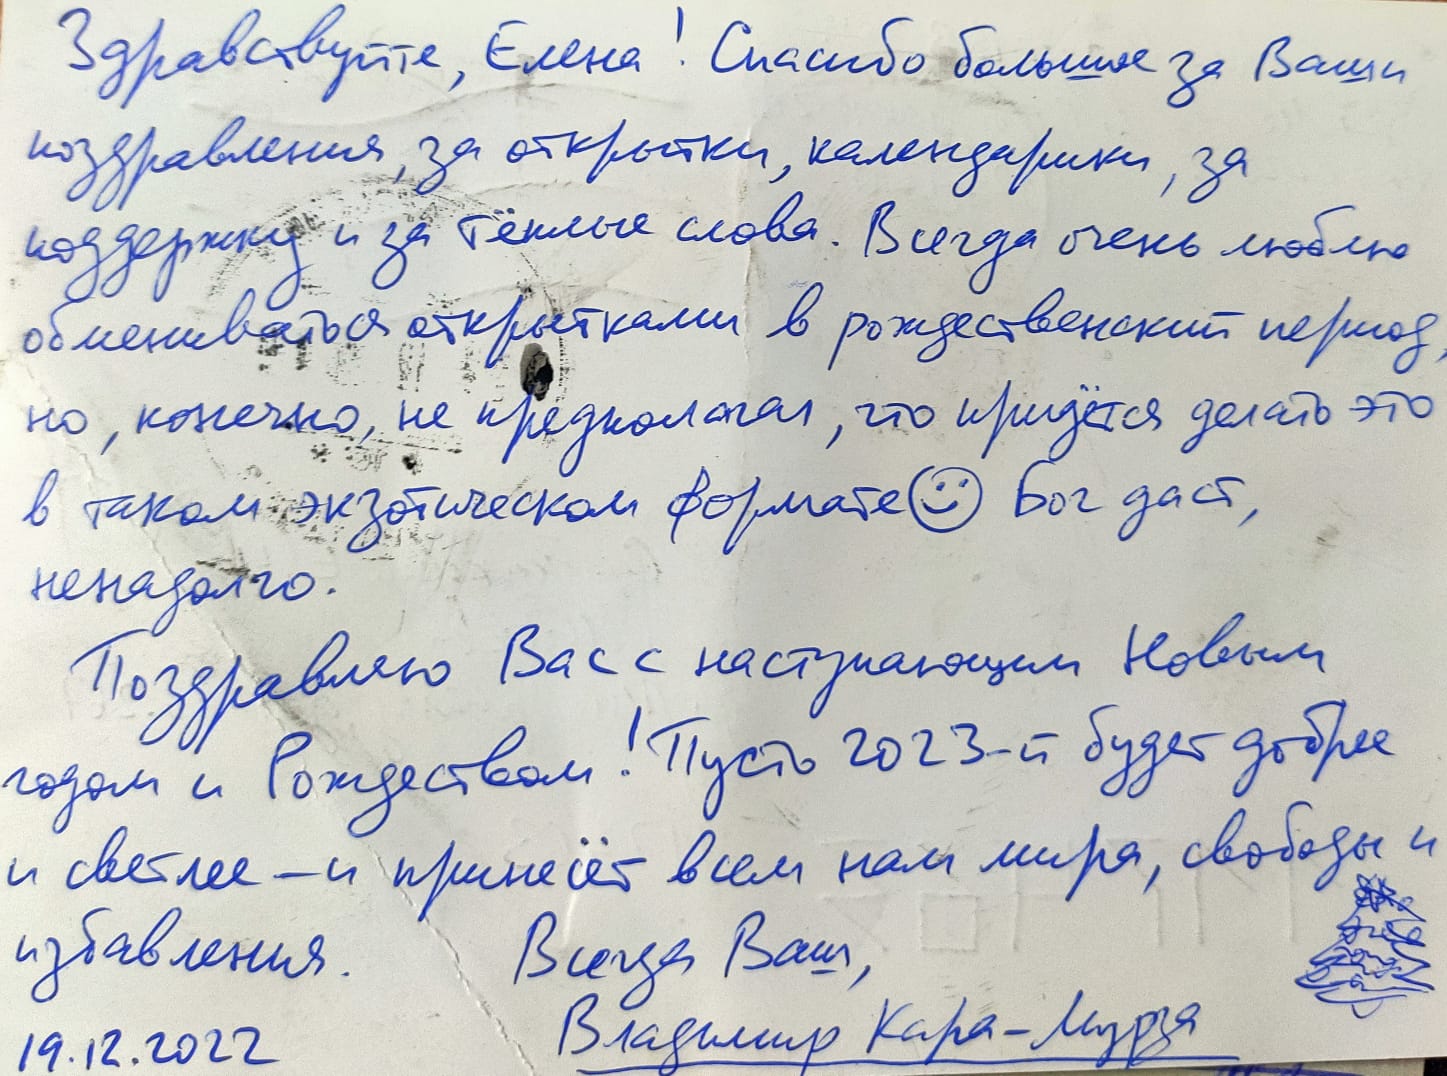 Здравствуйте, Елена! Спасибо большое за Ваши
поздравления, за открытки, календарики, за
поддержку и за тёплые слова. Всегда очень люблю
обмениваться открытками в рождественский период,
но, конечно, не предполагал, что придётся делать это
в таком экзотическом формате☺ Бог даст,
ненадолго.
Поздравляю Вас с наступающим Новым
годом и Рождеством! Пусть 2023-й будет добрее
и светлее – и принесёт всем нам мира, свободы и
избавления. Всегда Ваш,
19.12.2022 Владимир Кара-Мурза